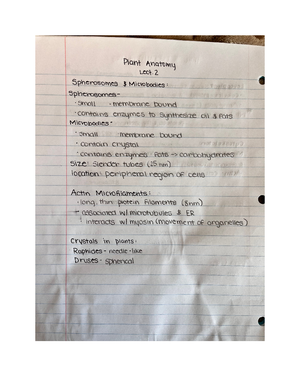 Plant Anatomy
Lect. 2
Spherosomes & Microbodies:
Spherosomes-
· small · membrane bound
· contains enzymes to synthesize oil & fats
Microbodies-
· small membrane bound
· contain crystal
· contains enzymes fats → carbohydrates
Size: Slender tubes (25nm)
location: peripheral region of cells
Actin Microfilaments:
· long, thin protein filaments (8nm)
associated w/ microtubules & ER
interacts w/ myosin (movement of organelles)
Crystals in plants:
Raphides - needle-like
Druses - spherical